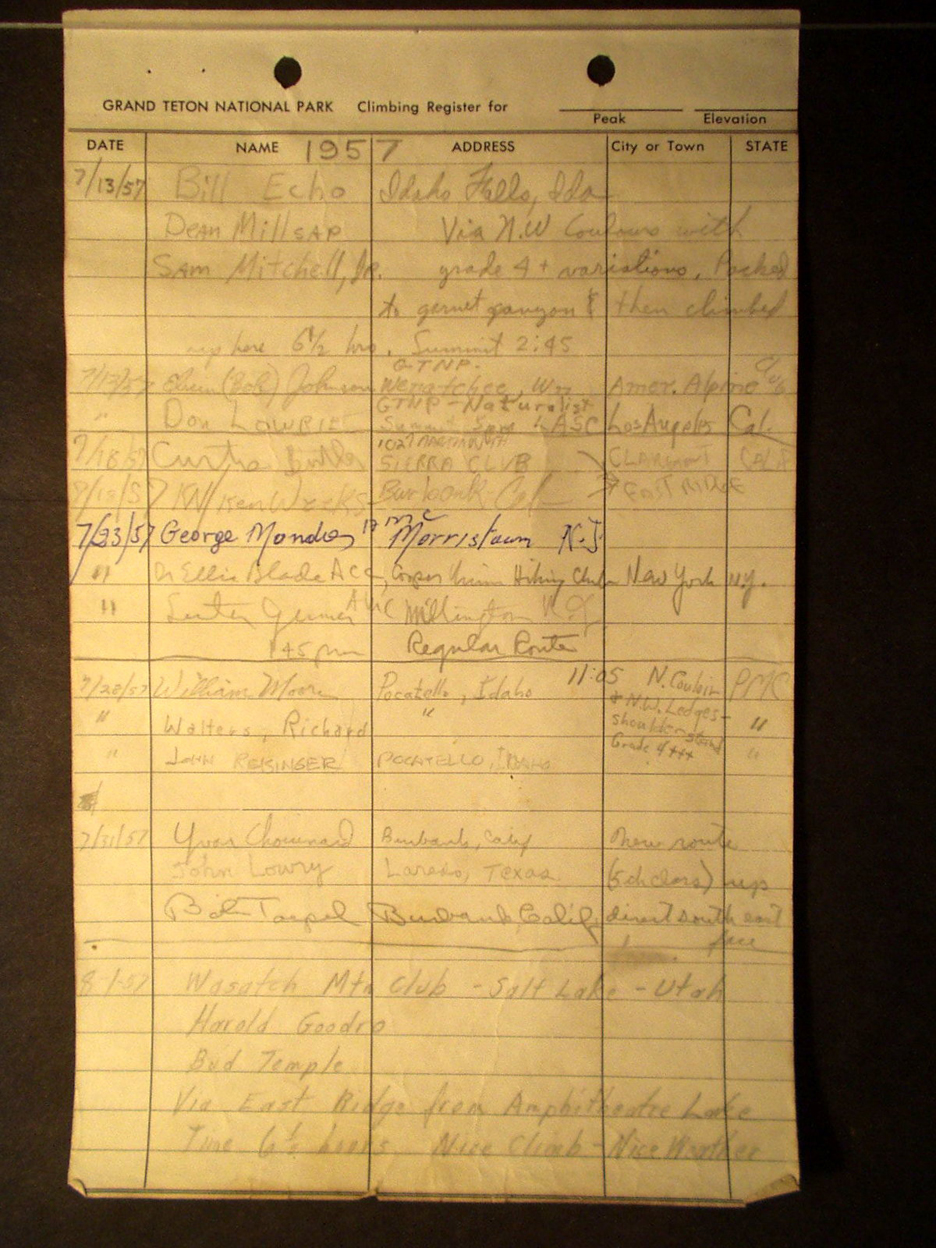 GRAND TETON NATIONAL PARK Climbing Register for
Peak Elevation
DATE NAME 1957 ADDRESS City or Town STATE
7/13/57 Bill Echo Idaho Falls, Ida
Dean Millsap Via N.W Couloirs with
Sam Mitchell, Jr. grade 4+ variations. Packed
to garnet canyon & then climbed
up here 6½ hrs. Summit 2:45
GTNP.
7/13/57 (Bob) Johnson Wenatchee, Wn Amer. Alpine Club
GTNP - Naturalist
" Don Lowrie Summit 5pm LASC Los Angeles Cal.
7/18/57 Curtis SIERRA CLUB CLARMONT CALIF
Ken Weeks Burbank Cal EAST RIDGE
7/23/57 George Mandres Morristown N.J
" Ellis Blade Hiking Club New York N.Y.
" Lester Germer AMC Millington N.J.
1:45 pm Regular Route
7/28/57 William Moore Pocatello, Idaho 11:05 N. Couloir
+ N.W. Ledges-
" Walters, Richard " shoulder stand "
" JOHN REISINGER POCATELLO, IDAHO Grade 4+++ "
7/31/57 Yvon Chouinard Burbank, Calif New route
John Lowry Laredo, Texas (5th class) up
Bob Burbank, Calif, direct south east
face
8-1-57 Wasatch Mtn Club - Salt Lake - Utah
Harold Goodro
Bud Temple
Via East Ridge from Amphitheatre Lake
Time 6½ hours, Nice Climb - Nice Weather